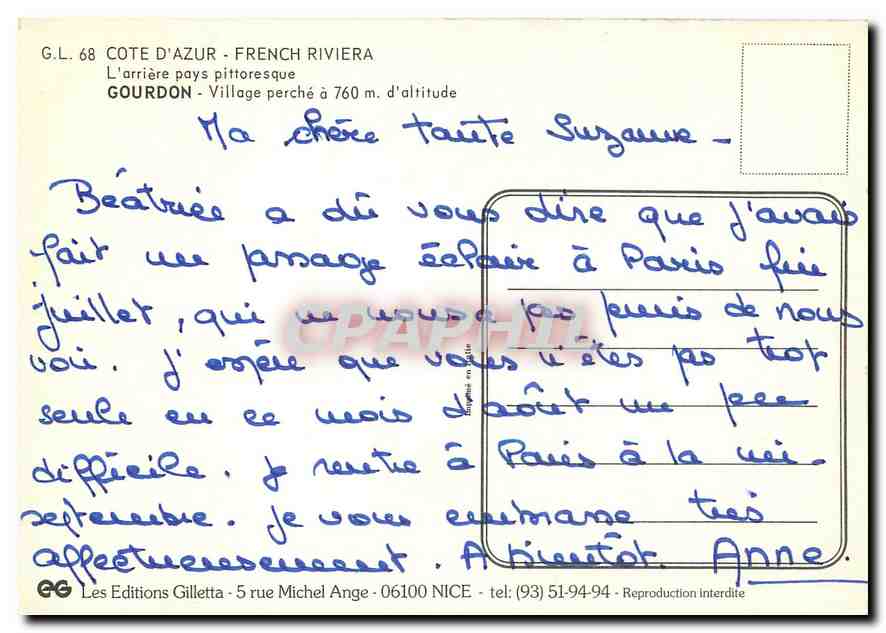 G.L. 68 COTE D'AZUR - FRENCH RIVIERA
L'arrière pays pittoresque
GOURDON - Village perché à 760 m. d'altitude
Ma chère tante Suzanne -
Béatrice a dû vous dire que j'avais
fait un passage éclair à Paris fin
juillet, qui ne nous a pas permis de nous
voir. J'espère que vous n'êtes pas trop
seule en ce mois d'août un peu
difficile. Je rentre à Paris à la mi-
septembre. Je vous embrasse très
affectueusement. A bientôt. Anne.
CPAPHIL
Imprimé en Italie
Les Editions Gilletta - 5 rue Michel Ange - 06100 NICE - tel: (93) 51-94-94 - Reproduction interdite